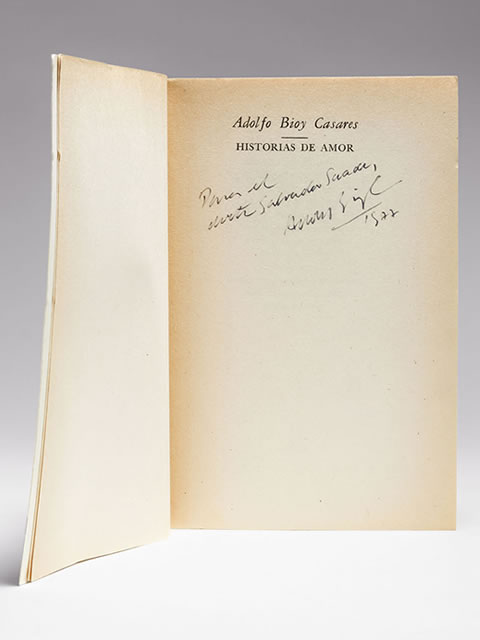 Adolfo Bioy Casares
HISTORIAS DE AMOR
Para el
Salvador Saade,
Adolfo
1977